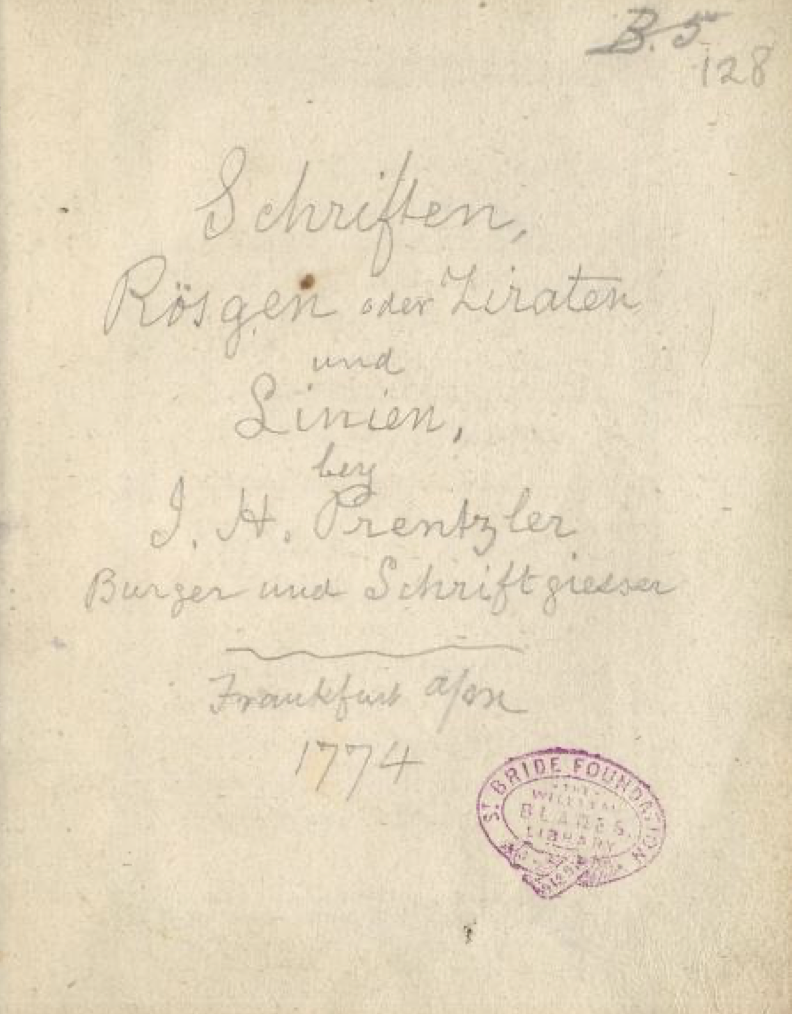 B. 5
128
Schriften,
Rösgen oder Ziraten
und
Linien,
bey
J. H. Prentzler
Burger und Schriftgiesser
Frankfurt a/m
1774
ST. BRIDE FOUNDATION
THE
WILLIAM
BLADES
LIBRARY